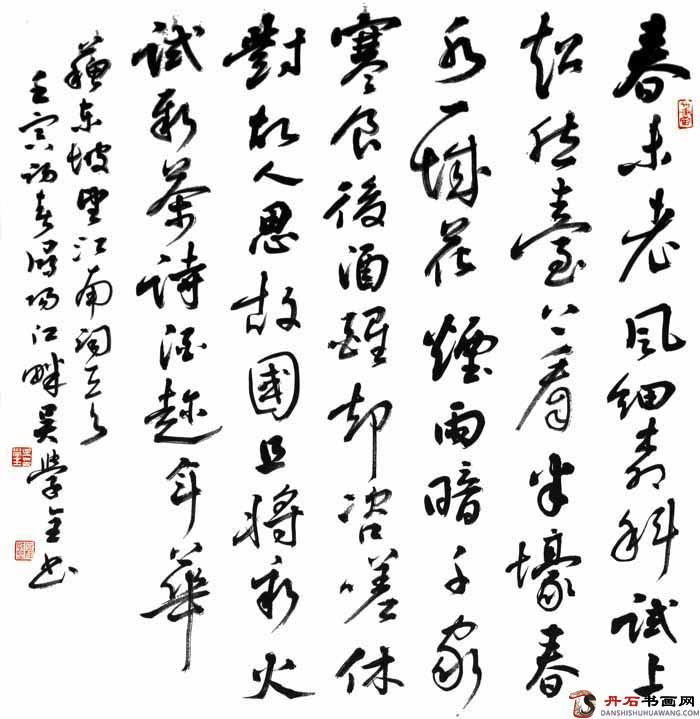 春未老風細柳斜試上
超然臺上看半壕春
水一城花煙雨暗千家
寒食後酒醒卻咨嗟休
對故人思故國且將新火
試新茶詩酒趁年華
蘇東坡望江南詞
壬寅初春潯陽江畔吳學全書
丹石书画网
DANSHISHUHUAWANG.COM